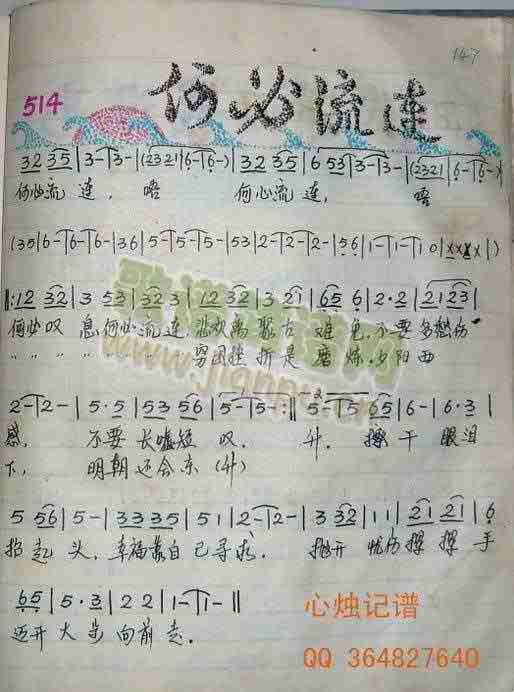 147
514
何必流连
3 2 3 5 | 3 - | 3 - | (2 3 2 1 | 6 - | 6 -) | 3 2 3 5 | 6 5 3 | 3 - | 3 - | (2 3 2 1 | 6 - | 6 -)
何必流连, 唔 何必流连, 唔
(3 5 | 6 - | 6 - | 6 - | 3 6 | 5 - | 5 - | 5 - | 5 3 | 2 - | 2 - | 2 - | 5 6 | 1 - | 1 - | 1 0 | x x x x | )
‖: 1 2 3 2 | 3 5 3 | 3 2 3 | 1 2 3 2 | 3 2 1 | 6 5 6 | 2 · 2 | 2 1 2 3 |
何必叹息,何必流连,悲欢离聚古难免,不要多愁伤
" " " " " " 穷困挫折是磨炼,夕阳西
2 - | 2 - | 5 · 5 | 5 3 5 6 | 5 - | 5 - :‖ 5 - | 5 6 5 | 6 - | 6 · 3 |
感, 不要长嘘短叹. 升. 擦干眼泪
下, 明朝还会东(升)
5 5 6 | 5 - | 3 3 3 5 | 5 1 | 2 - | 2 - | 3 3 2 | 1 1 | 2 1 2 1 | 6
抬起头,幸福靠自己寻求. 抛开忧伤挥挥手
6 5 | 5 · 3 | 2 2 | 1 - | 1 - ‖
迈开大步向前走.
歌谱简谱网
www.jianpu.cn
心烛记谱
QQ 364827640